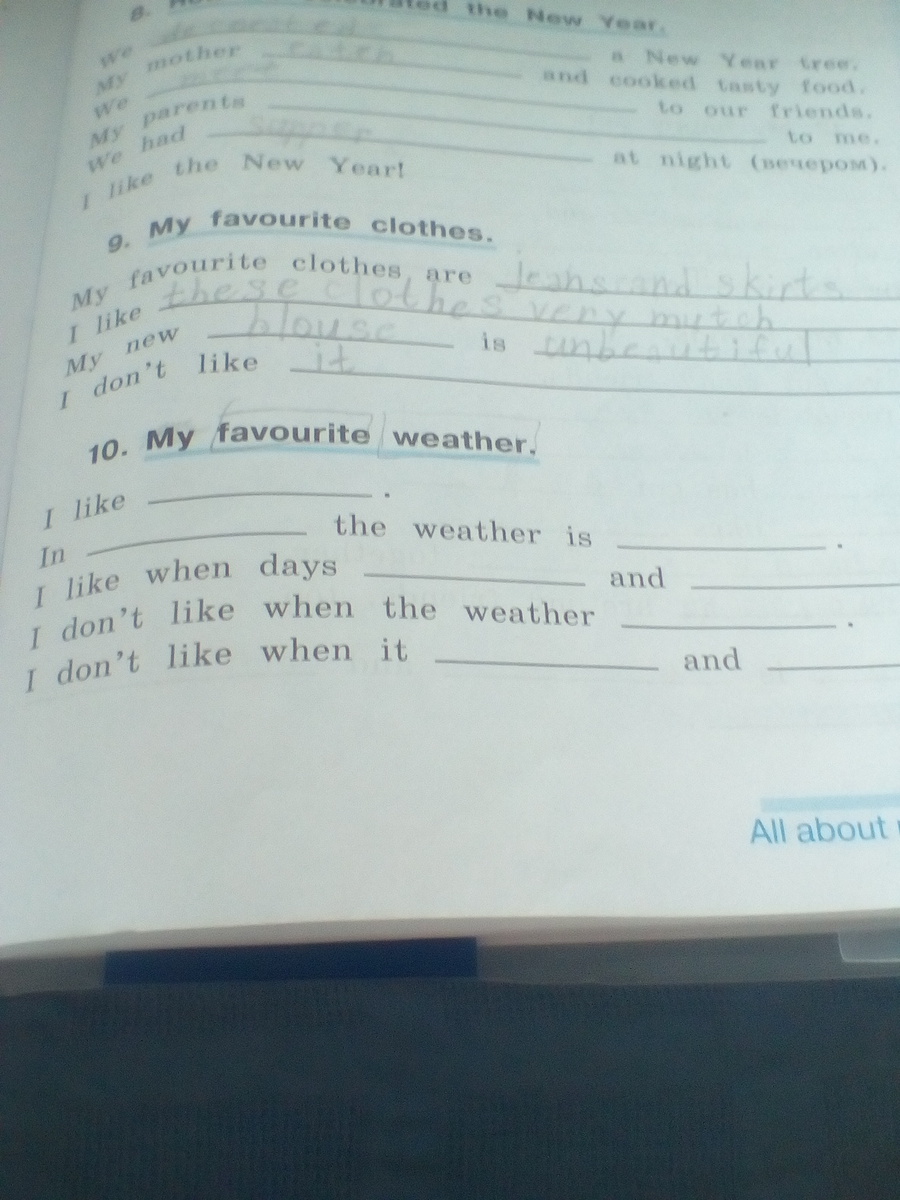 8. the New Year.
We decorated a New Year tree.
My mother and cooked tasty food.
We to our friends.
My parents to me.
We had supper at night (вечером).
I like the New Year!
9. My favourite clothes.
My favourite clothes are Jeans and skirts
I like these clothes very mutch
My new blouse is unbeautiful
I don't like it
10. My favourite weather.
I like .
In the weather is .
I like when days and
I don't like when the weather .
I don't like when it and
All about